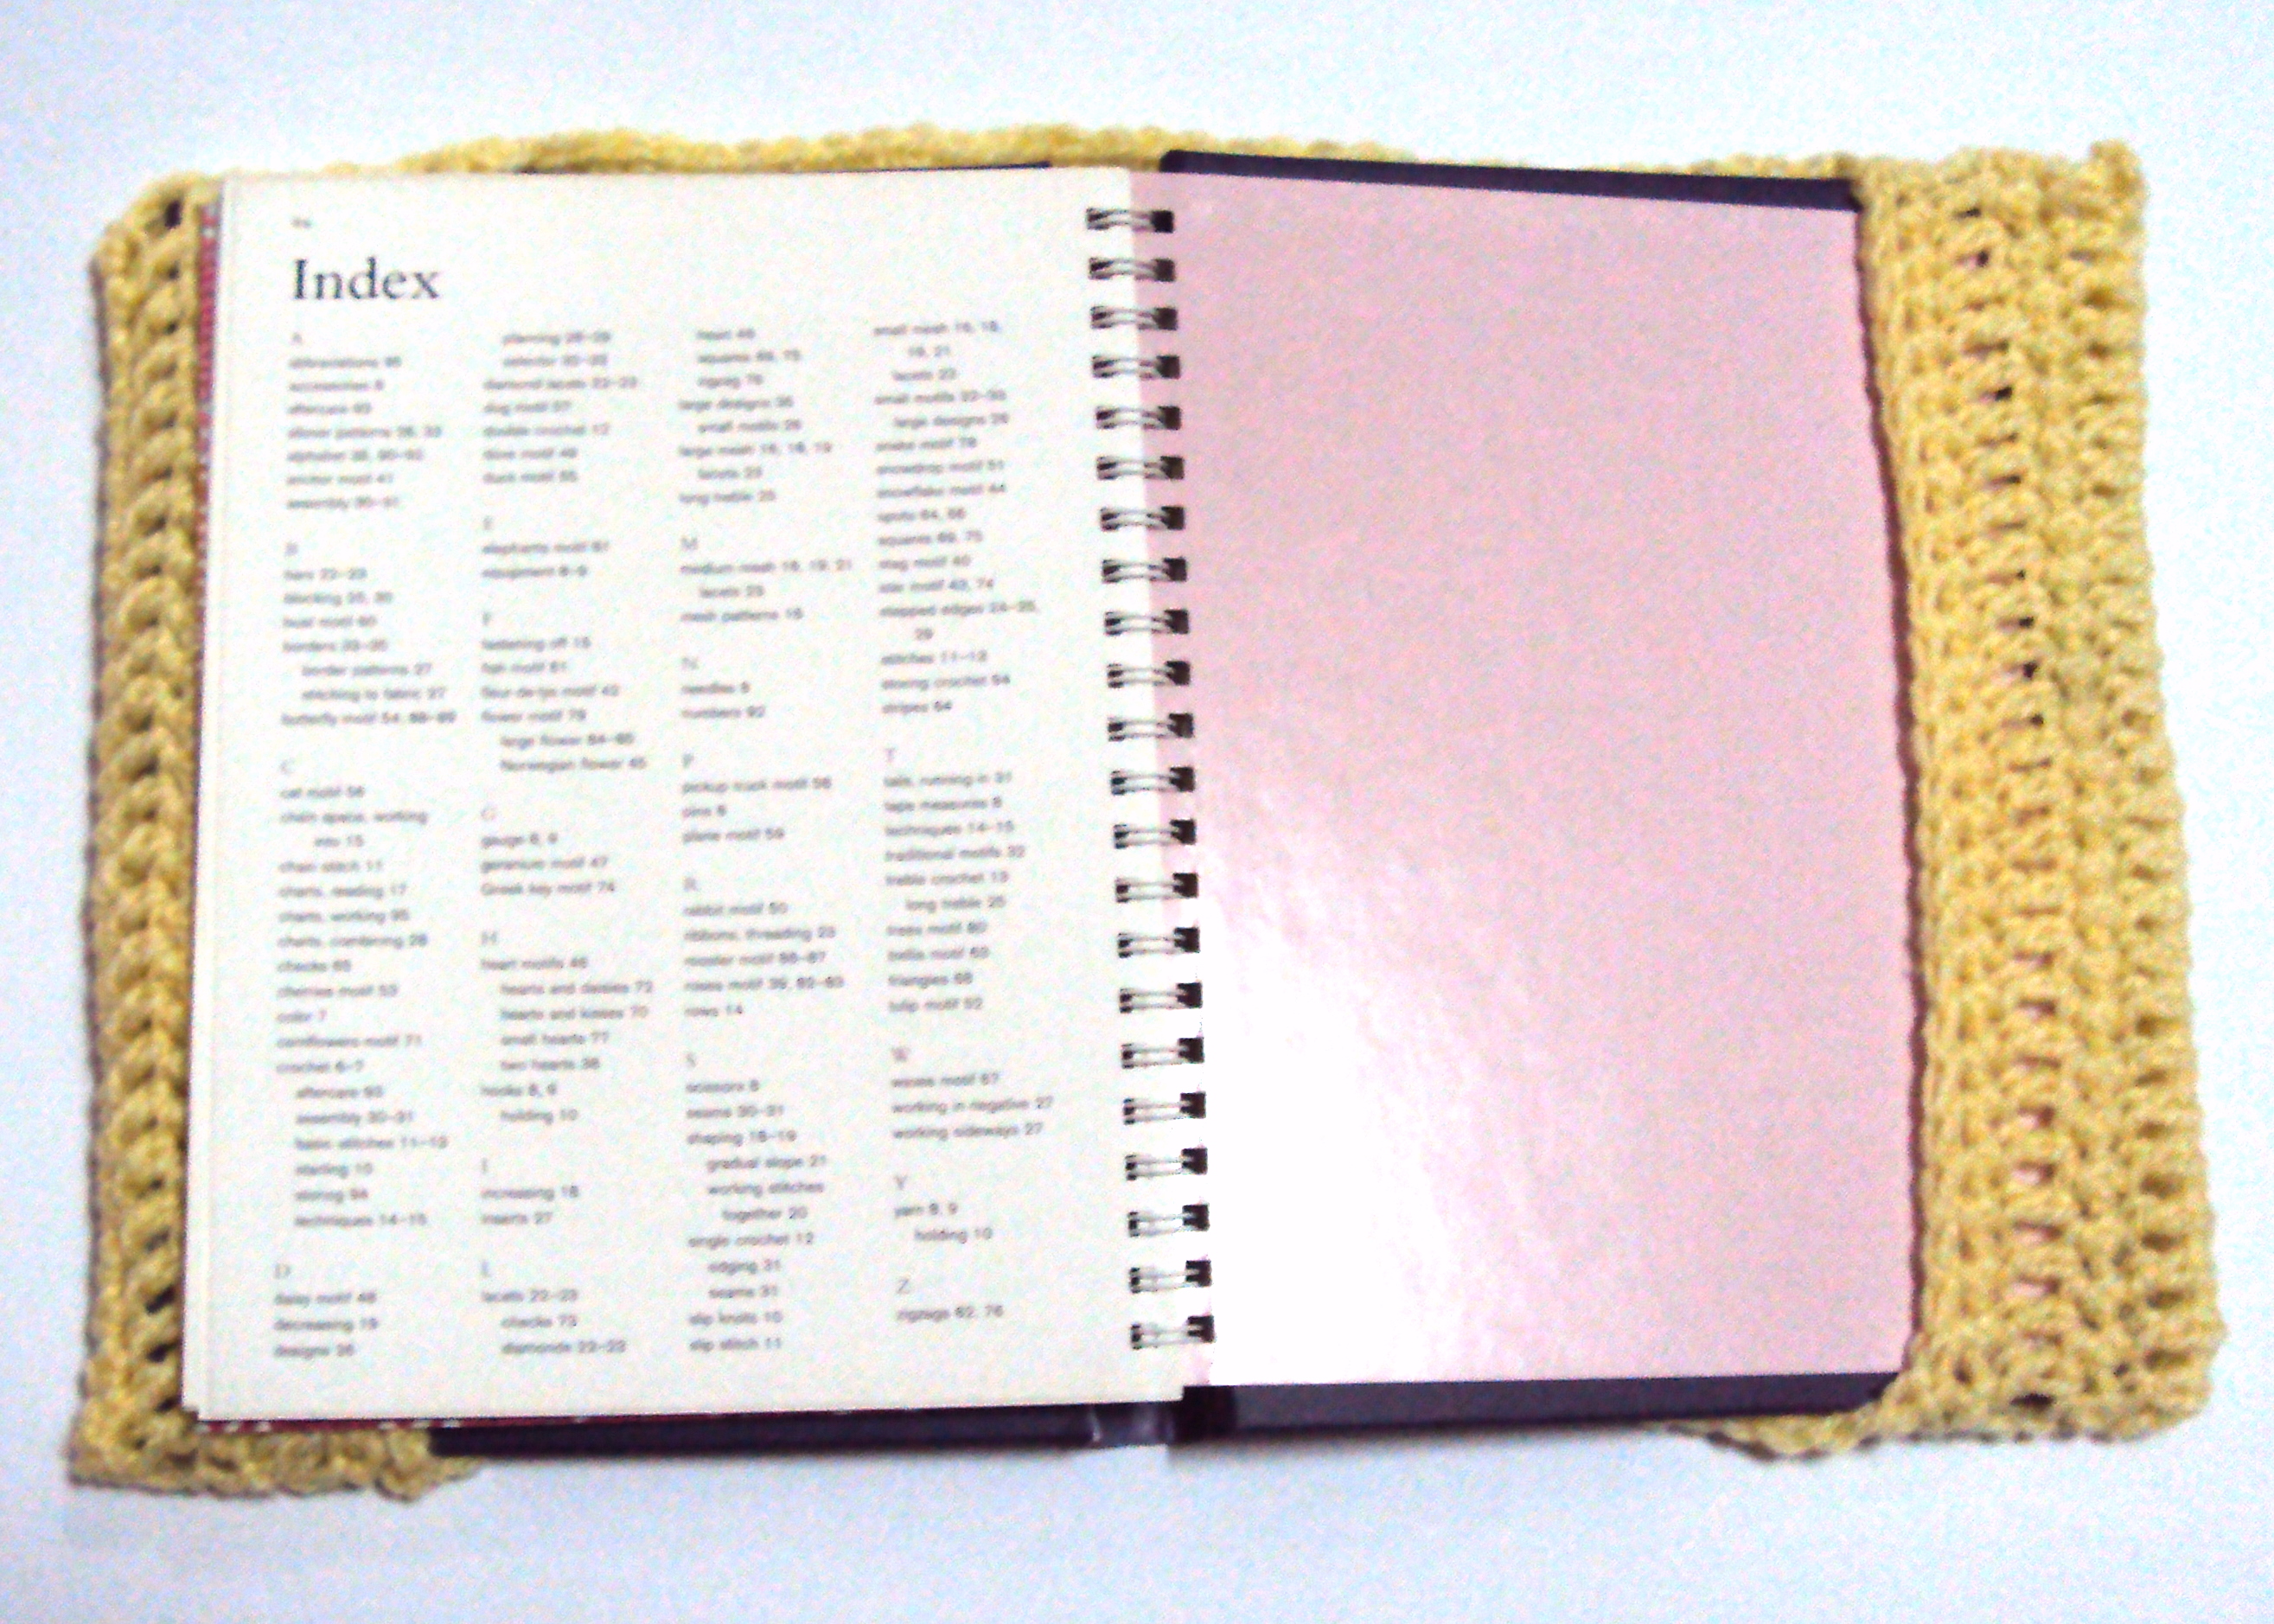 Index
A
abbreviations 95
accessories 8
aftercare 93
allover patterns 26, 33
alphabet 38, 90-92
anchor motif 41
assembly 30-31
B
bars 22-23
blocking 30, 93
borders 33-35
border patterns 27
stitching to fabric 27
butterfly motif 54, 88-89
C
cat motif 56
chain space, working
into 15
chain stitch 11
charts, reading 17
charts, working 95
charts, combining 28
checks 65
cherries motif 53
color 7
cornflowers motif 71
crochet 6-7
aftercare 93
assembly 30-31
basic stitches 11-13
starting 10
storing 94
techniques 14-15
D
daisy motif 48
decreasing 19
designs 36
planning 28-29
selector 32-35
diamond lacets 22-23
dog motif 57
double crochet 12
dove motif 49
duck motif 55
E
elephants motif 81
equipment 8-9
F
fastening off 15
fish motif 61
fleur-de-lys motif 42
flower motif 79
large flower 84-85
Norwegian flower 45
G
gauge 8, 9
geranium motif 47
Greek key motif 74
H
heart motifs 46
hearts and daisies 72
hearts and kisses 70
small hearts 77
two hearts 38
hooks 8, 9
holding 10
I
increasing 18
inserts 27
L
lacets 22-23
checks 73
diamonds 22-23
heart 46
squares 69, 75
zigzag 76
large designs 36
small motifs 26
large mesh 16, 18, 19
lacets 23
long treble 25
M
medium mesh 16, 19, 21
lacets 23
mesh patterns 16
N
needles 8
numbers 92
P
pickup truck motif 58
pins 8
plane motif 59
R
rabbit motif 50
ribbons, threading 23
rooster motif 86-87
roses motif 39, 82-83
rows 14
S
scissors 8
seams 30-31
shaping 18-19
gradual slope 21
working stitches
together 20
single crochet 12
edging 31
seams 31
slip knots 10
slip stitch 11
small mesh 16, 18,
19, 21
lacets 23
small motifs 32-35
large designs 26
snake motif 78
snowdrop motif 51
snowflake motif 44
spots 64, 66
squares 69, 75
stag motif 40
star motif 43, 74
stepped edges 24-25,
29
stitches 11-13
storing crochet 94
stripes 64
T
tails, running in 31
tape measures 8
techniques 14-15
traditional motifs 32
treble crochet 13
long treble 25
trees motif 80
trellis motif 63
triangles 68
tulip motif 52
W
waves motif 67
working in negative 27
working sideways 27
Y
yarn 8, 9
holding 10
Z
zigzags 62, 76